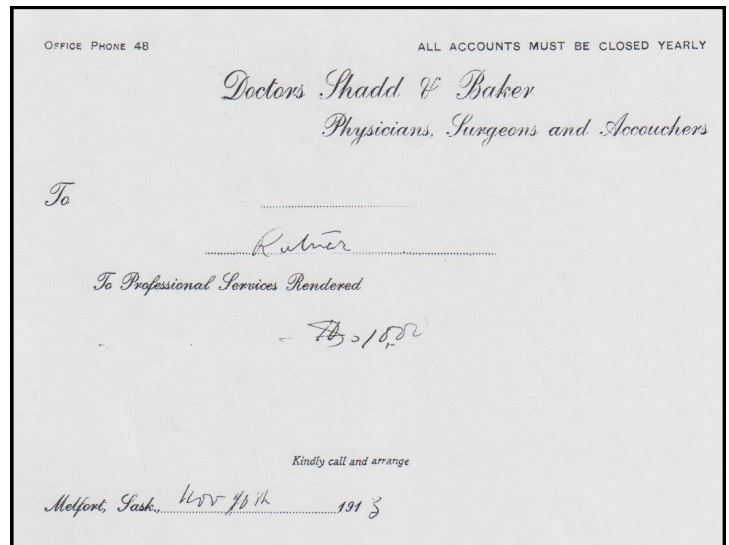 OFFICE PHONE 48
ALL ACCOUNTS MUST BE CLOSED YEARLY
Doctors Shadd & Baker
Physicians, Surgeons and Accouchers
To
To Professional Services Rendered
Kindly call and arrange
Melfort, Sask., Nov 1913